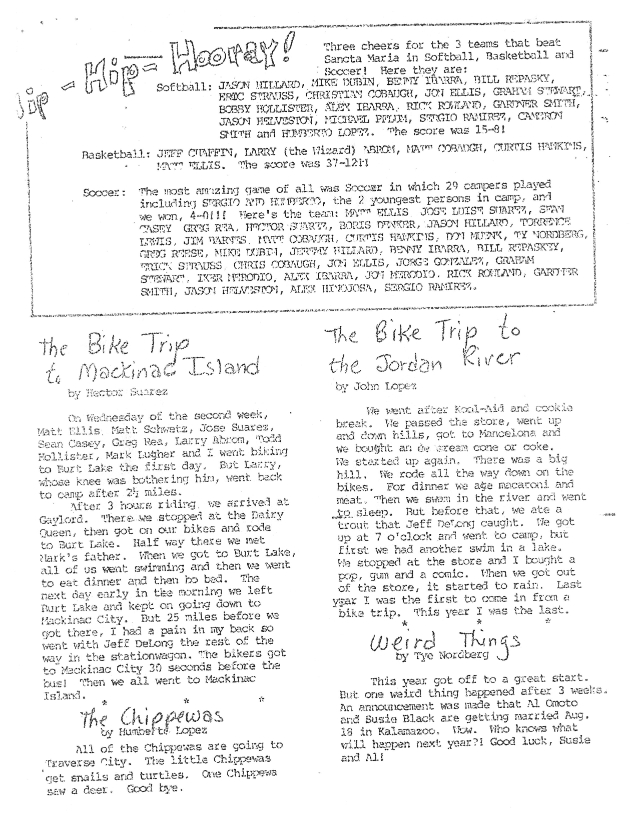 Hip - Hip - Hooray!
Three cheers for the 3 teams that beat
Sancta Maria in Softball, Basketball and
Soccer! Here they are:
Softball: JASON HILLARD, MIKE DUBIN, BENNY IBARRA, BILL REPASKY,
ERIC STRAUSS, CHRISTIAN COBAUGH, JON ELLIS, GRAHAM STEWART,
BOBBY HOLLISTER, ALEX IBARRA, RICK ROWLAND, GARDNER SMITH,
JASON HELVESTON, MICHAEL PFLUM, SERGIO RAMIREZ, CAMERON
SMITH and HUMBERTO LOPEZ. The score was 15-8!
Basketball: JEFF CHAFFIN, LARRY (the Wizard) ABROM, MATT COBAUGH, CURTIS HAWKINS,
MATT ELLIS. The score was 37-12!!
Soccer: The most amazing game of all was Soccer in which 29 campers played
including SERGIO AND HUMBERTO, the 2 youngest persons in camp, and
we won, 4-0!!! Here's the team: MATT ELLIS JOSE LUISE SUAREZ, SEAN
CASEY GREG REA, HECTOR SUAREZ, BORIS DENKER, JASON HILLARD, TORRENCE
LEWIS, JIM BARNES, MATT COBAUGH, CURTIS HAWKINS, DON MUNK, TY NORDBERG,
GREG REESE, MIKE DUBIN, JEREMY HILLARD, BENNY IBARRA, BILL REPASKEY,
ERICK STRAUSS, CHRIS COBAUGH, JON ELLIS, JORGE GONZALEZ, GRAHAM
STEWART, IKER MERODIO, ALEX IBARRA, JON MERODIO, RICK ROWLAND, GARDNER
SMITH, JASON HELVESTON, ALEX HINOJOSA, SERGIO RAMIREZ.
The Bike Trip
to Mackinac Island
by Hector Suarez
On Wednesday of the second week,
Matt Ellis, Matt Schwetz, Jose Suarez,
Sean Casey, Greg Rea, Larry Abrom, Todd
Hollister, Mark Lugher and I went biking
to Burt Lake the first day. But Larry,
whose knee was bothering him, went back
to camp after 2½ miles.
After 3 hours riding, we arrived at
Gaylord. There we stopped at the Dairy
Queen, then got on our bikes and rode
to Burt Lake. Half way there we met
Mark's father. When we got to Burt Lake,
all of us went swimming and then we went
to eat dinner and then ho bed. The
next day early in the morning we left
Burt Lake and kept on going down to
Mackinac City. But 25 miles before we
got there, I had a pain in my back so
went with Jeff DeLong the rest of the
way in the stationwagon. The bikers got
to Mackinac City 30 seconds before the
bus! Then we all went to Mackinac
Island.
* * *
The Chippewas
by Humberto Lopez
All of the Chippewas are going to
Traverse City. The little Chippewas
get snails and turtles. One Chippewa
saw a deer. Good bye.
The Bike Trip to
the Jordan River
by John Lopez
We went after Kool-Aid and cookie
break. We passed the store, went up
and down hills, got to Mancelona and
we bought an ice cream cone or coke.
We started up again. There was a big
hill. We rode all the way down on the
bikes. For dinner we age macaroni and
meat. Then we swam in the river and went
to sleep. But before that, we ate a
trout that Jeff DeLong caught. We got
up at 7 o'clock and went to camp, but
first we had another swim in a lake.
We stopped at the store and I bought a
pop, gum and a comic. When we got out
of the store, it started to rain. Last
year I was the first to come in from a
bike trip. This year I was the last.
* * *
Weird Things
by Tye Nordberg
This year got off to a great start.
But one weird thing happened after 3 weeks.
An announcement was made that Al Omoto
and Susie Black are getting married Aug.
18 in Kalamazoo. Wow. Who knows what
will happen next year?! Good luck, Susie
and Al!